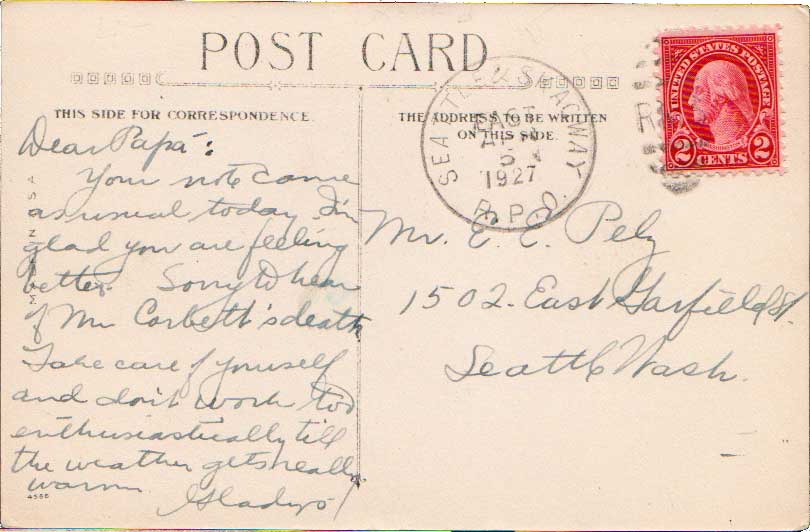 POST CARD
THIS SIDE FOR CORRESPONDENCE.
THE ADDRESS TO BE WRITTEN
ON THIS SIDE.
SEATTLE & SKAGWAY
EAST
5
1927
R.P.O.
UNITED STATES POSTAGE
2 CENTS 2
Dear Papa:
Your note came
as usual today I'm
glad you are feeling
better. Sorry to hear
of Mr Corbett's death
Take care of yourself
and don't work too
enthusiastically till
the weather gets really
warm. Gladys
Mr. E. E. Pelz
1502 East Garfield St.
Seattle Wash.
4566